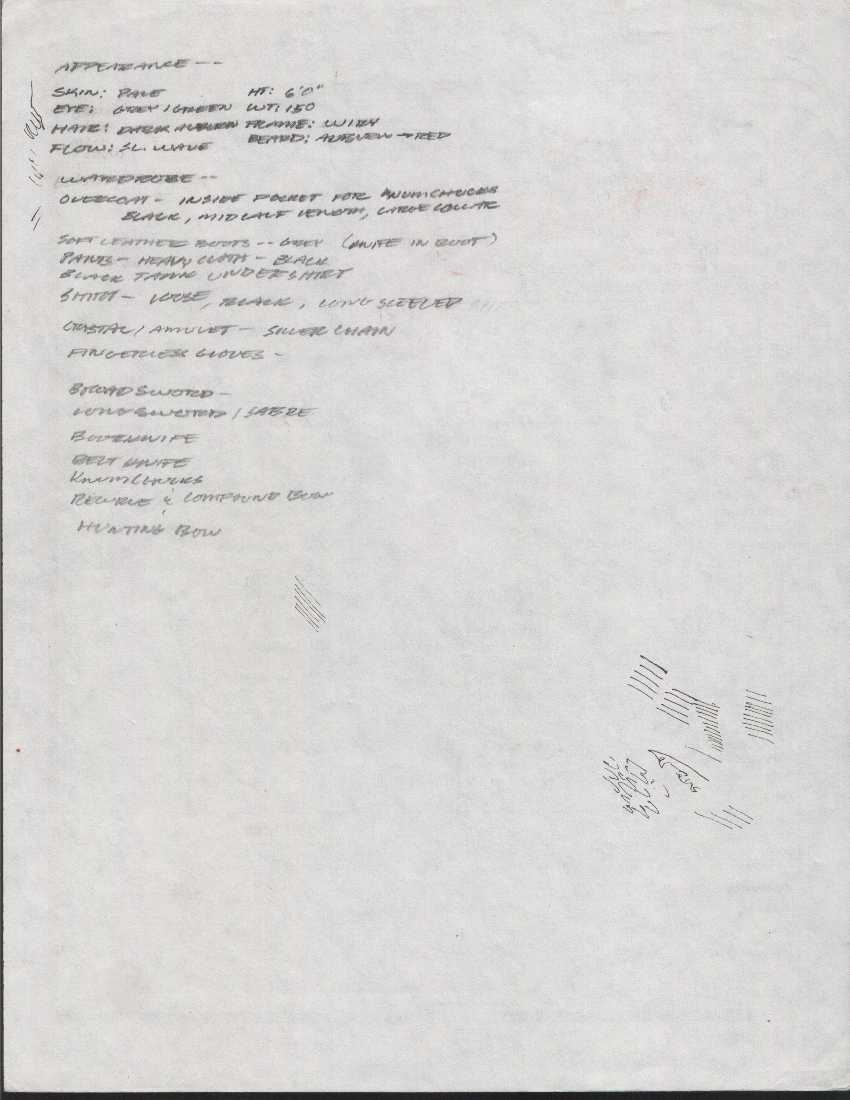 APPEARANCE --
SKIN: PALE HT: 6'0"
EYE: GREY/GREEN WT: 150
HAIR: DARK AUBURN FRAME: WIRY
FLOW: SL. WAVE BEARD: AUBURN → RED
WARDROBE --
OVERCOAT - INSIDE POCKET FOR KNUMCHUCKS
BLACK, MID CALF LENGTH, LARGE COLLAR
SOFT LEATHER BOOTS -- GREY (KNIFE IN BOOT)
PANTS - HEAVY CLOTH - BLACK
BLACK TANK UNDERSHIRT
SHIRT - LOOSE, BLACK, LONG SLEEVED
CRYSTAL/AMULET - SILVER CHAIN
FINGERLESS GLOVES -
BROADSWORD -
LONG SWORD/SABRE
BOOT KNIFE
BELT KNIFE
KNUMCHUCKS
RECURVE & COMPOUND BOW
HUNTING BOW